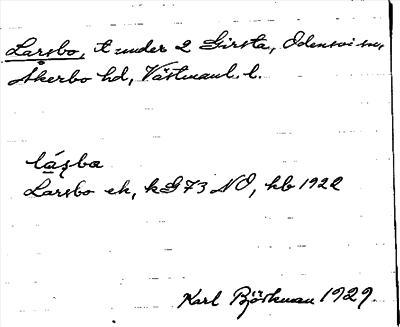 Larsbo, t under 2 Girsta, Odensvi sn,
Åkerbo hd, Västmanl. l.
láṣba
Larsbo ek, kG73 NO, hb 1922
Karl Björkman 1929.